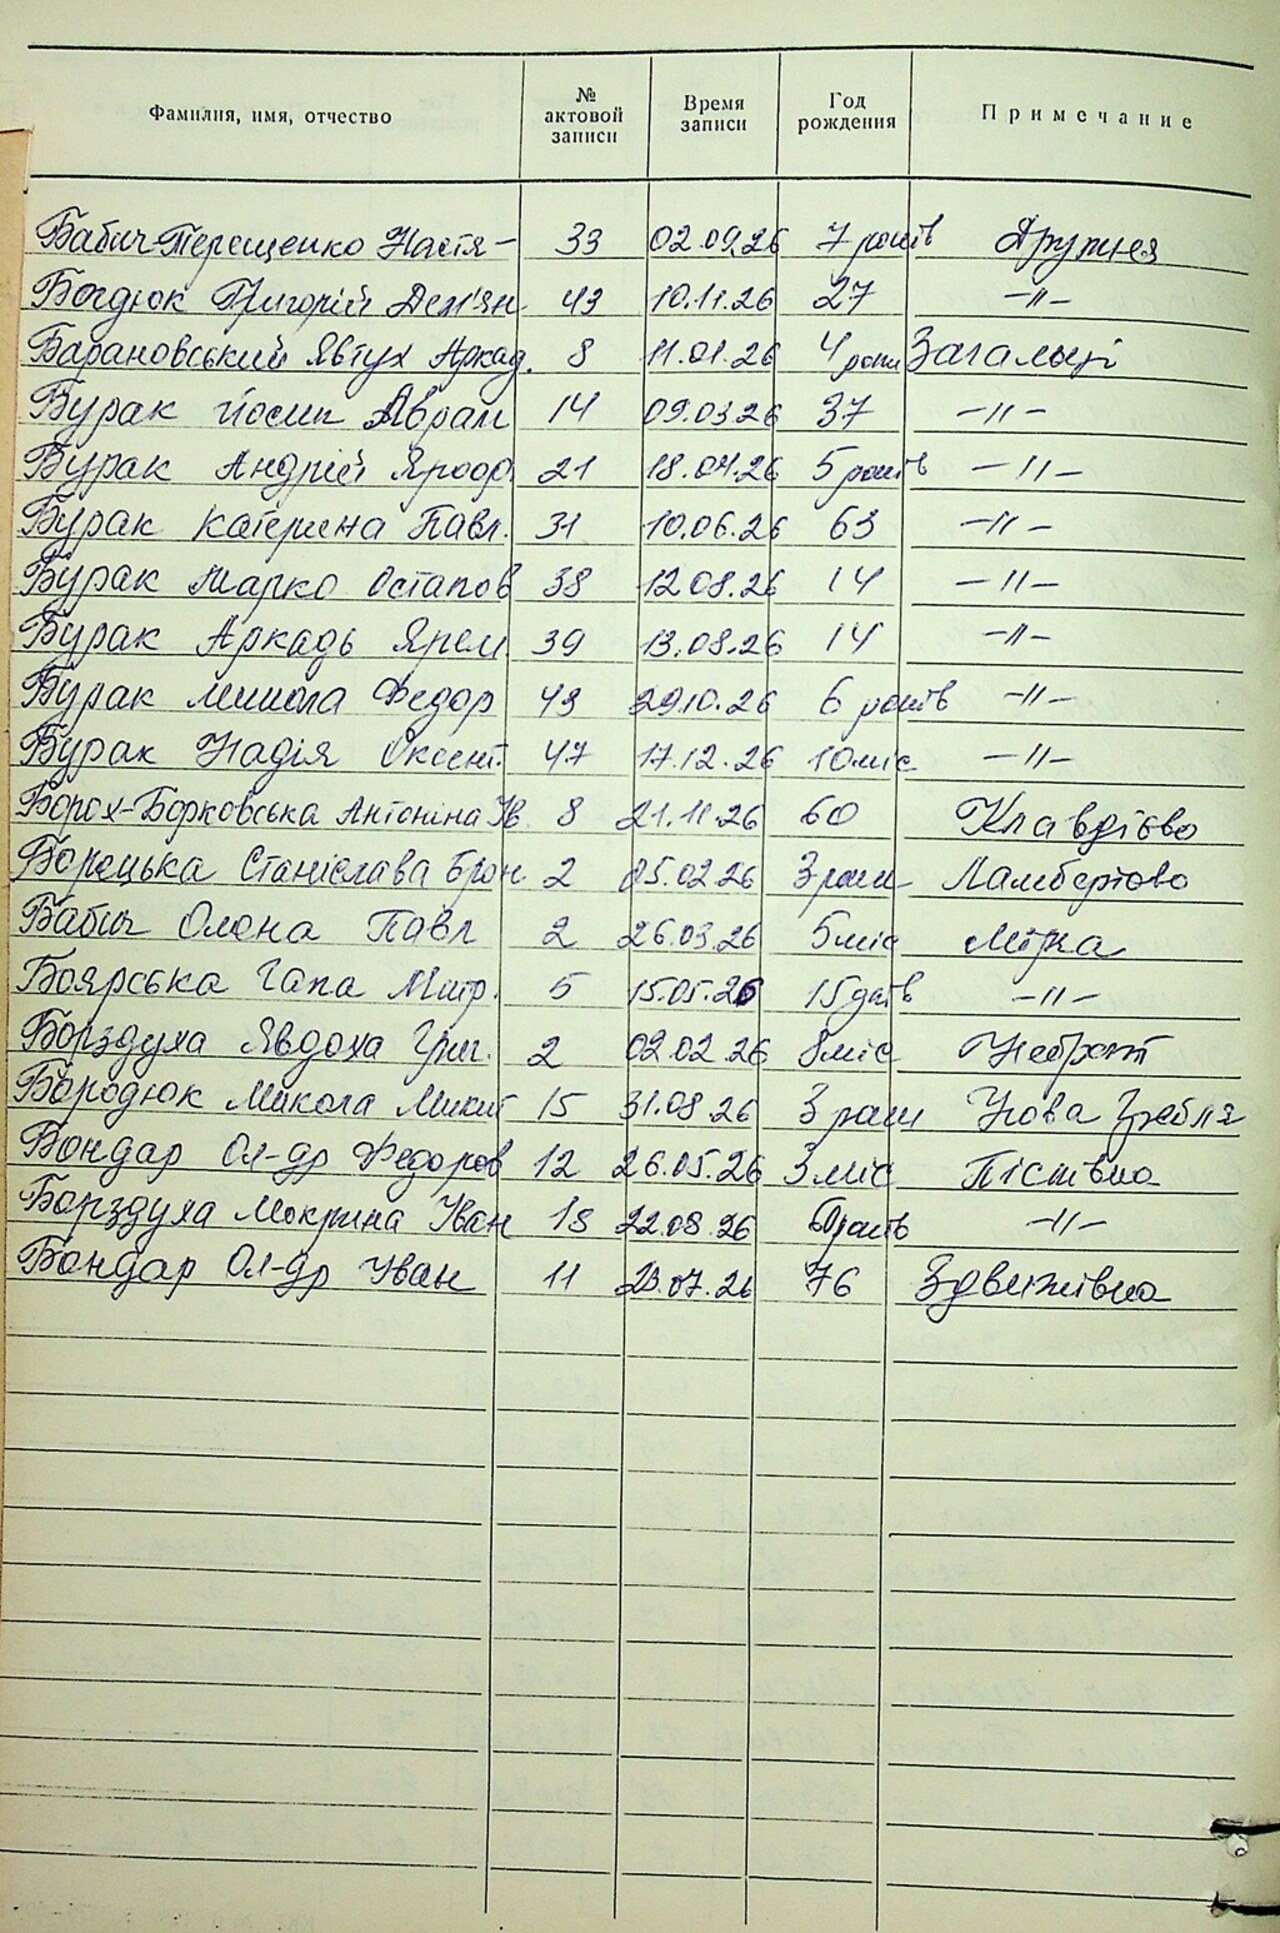 Фамилия, имя, отчество № актовой записи Время записи Год рождения Примечание
Бабич-Терещенко Настя – 33 02.09.26 7 років Дружня
Богдюк Григорій Дем'ян 43 10.11.26 27 –"–
Барановський Явтух Аркад. 8 11.01.26 4 роки Загальці
Бурак Йосип Аврам 14 09.03.26 37 –"–
Бурак Андрій 21 18.04.26 5 років –"–
Бурак Катерина Павл. 31 10.06.26 63 –"–
Бурак Марко Остапов 38 12.08.26 14 –"–
Бурак Аркадь Ярем 39 13.08.26 14 –"–
Бурак Микола Федор 43 29.10.26 6 років –"–
Бурак Надія Оксент. 47 17.12.26 10 міс –"–
Борох-Борковська Антоніна Ів 8 21.11.26 60 Клавдієво
Борецька Станіслава Брон. 2 05.02.26 3 роки Ламбертово
Бабич Олена Павл 2 26.03.26 5 міс Мірча
Боярська Гапа Митр. 5 15.05.26 –"–
Борздуха Явдоха Григ. 2 02.02.26 8 міс Небрат
Бородюк Микола Микит 15 31.08.26 3 роки Нова Гребля
Бондар Ол-др Федоров 12 26.05.26 3 міс Пісківка
Борздуха Мокрина Іван 18 22.08.26 60 років –"–
Бондар Ол-др Іван 11 23.07.26 76 Здвижівка